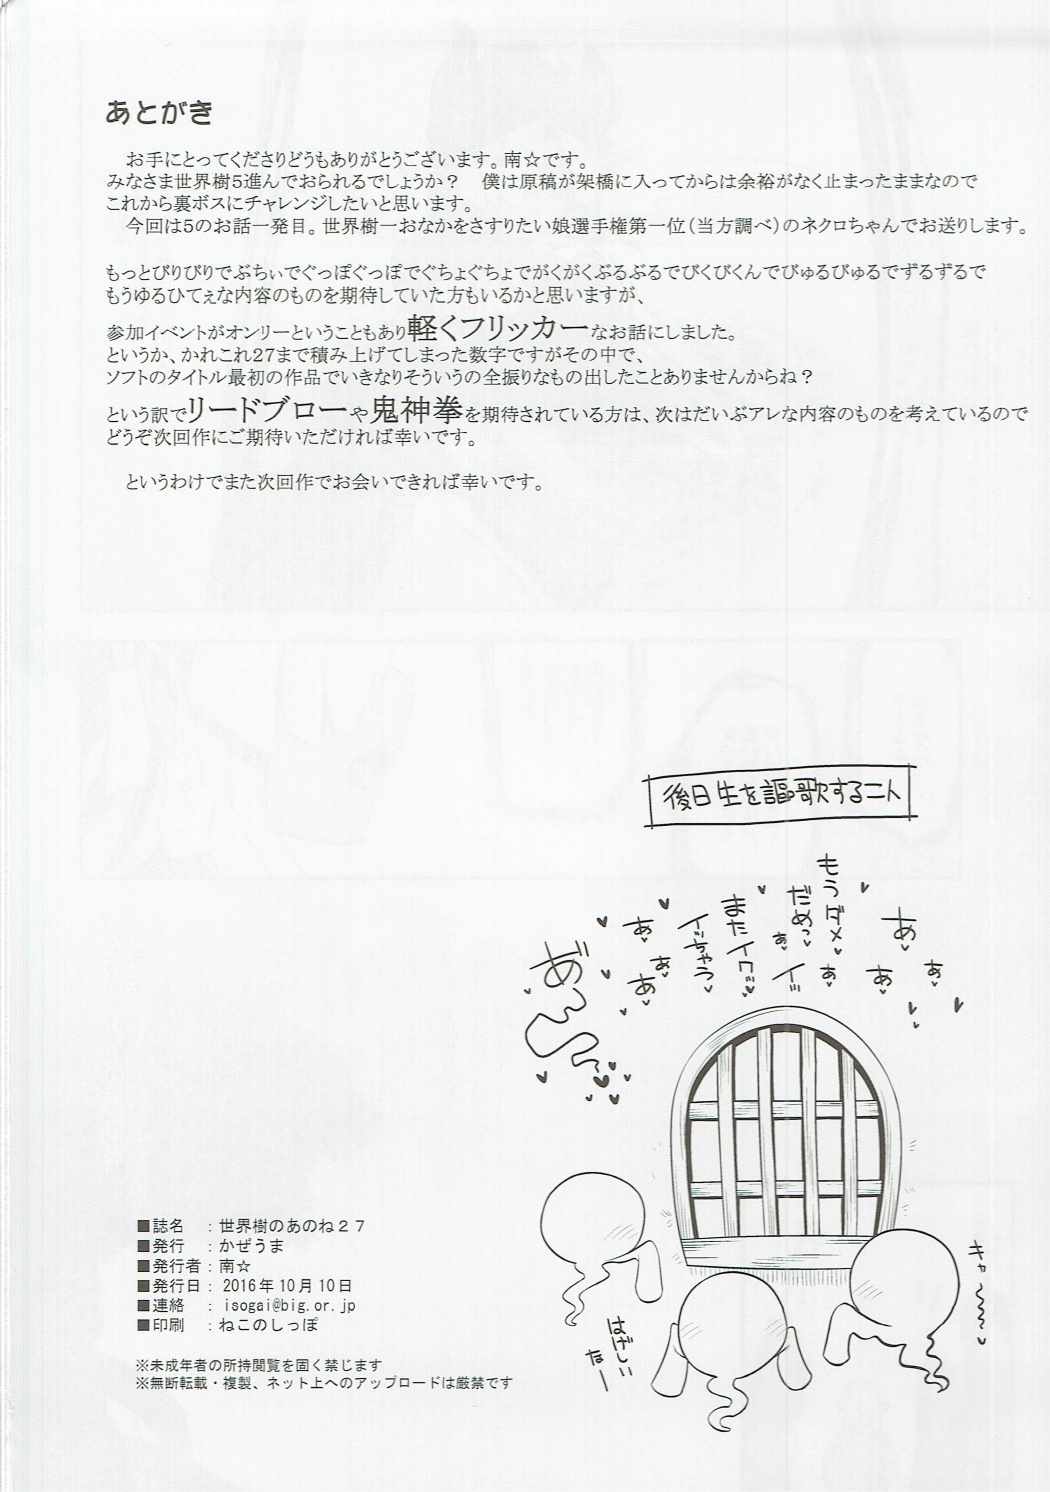 あとがき
お手にとってくださりどうもありがとうございます。南☆です。
みなさま世界樹5進んでおられるでしょうか？　僕は原稿が架橋に入ってからは余裕がなく止まったままなので
これから裏ボスにチャレンジしたいと思います。
今回は5のお話一発目。世界樹一おなかをさすりたい娘選手権第一位（当方調べ）のネクロちゃんでお送りします。
もっとびりびりでぶちぃでぐっぽぐっぽでぐちょぐちょでがくがくぶるぶるでびくびくんでびゅるびゅるでずるずるで
もうゆるひてぇな内容のものを期待していた方もいるかと思いますが、
参加イベントがオンリーということもあり軽くフリッカーなお話にしました。
というか、かれこれ27まで積み上げてしまった数字ですがその中で、
ソフトのタイトル最初の作品でいきなりそういうの全振りなもの出したことありませんからね？
という訳でリードブローや鬼神拳を期待されている方は、次はだいぶアレな内容のものを考えているので
どうぞ次回作にご期待いただければ幸いです。
というわけでまた次回作でお会いできれば幸いです。
後日生を謳歌する二人
あ♥
あ♥
あ♥
もうダメ♥
だめっ♥
あ♥
あ♥
イッ
またイクッ♥
イッちゃう♥
あ♥
あ♥
あ♥
あ゛
キャ〜〜♥
はげしい
なー
■誌名　：世界樹のあのね２７
■発行　：かぜうま
■発行者：南☆
■発行日：2016年10月10日
■連絡　：isogai@big.or.jp
■印刷　：ねこのしっぽ
※未成年者の所持閲覧を固く禁じます
※無断転載・複製、ネット上へのアップロードは厳禁です